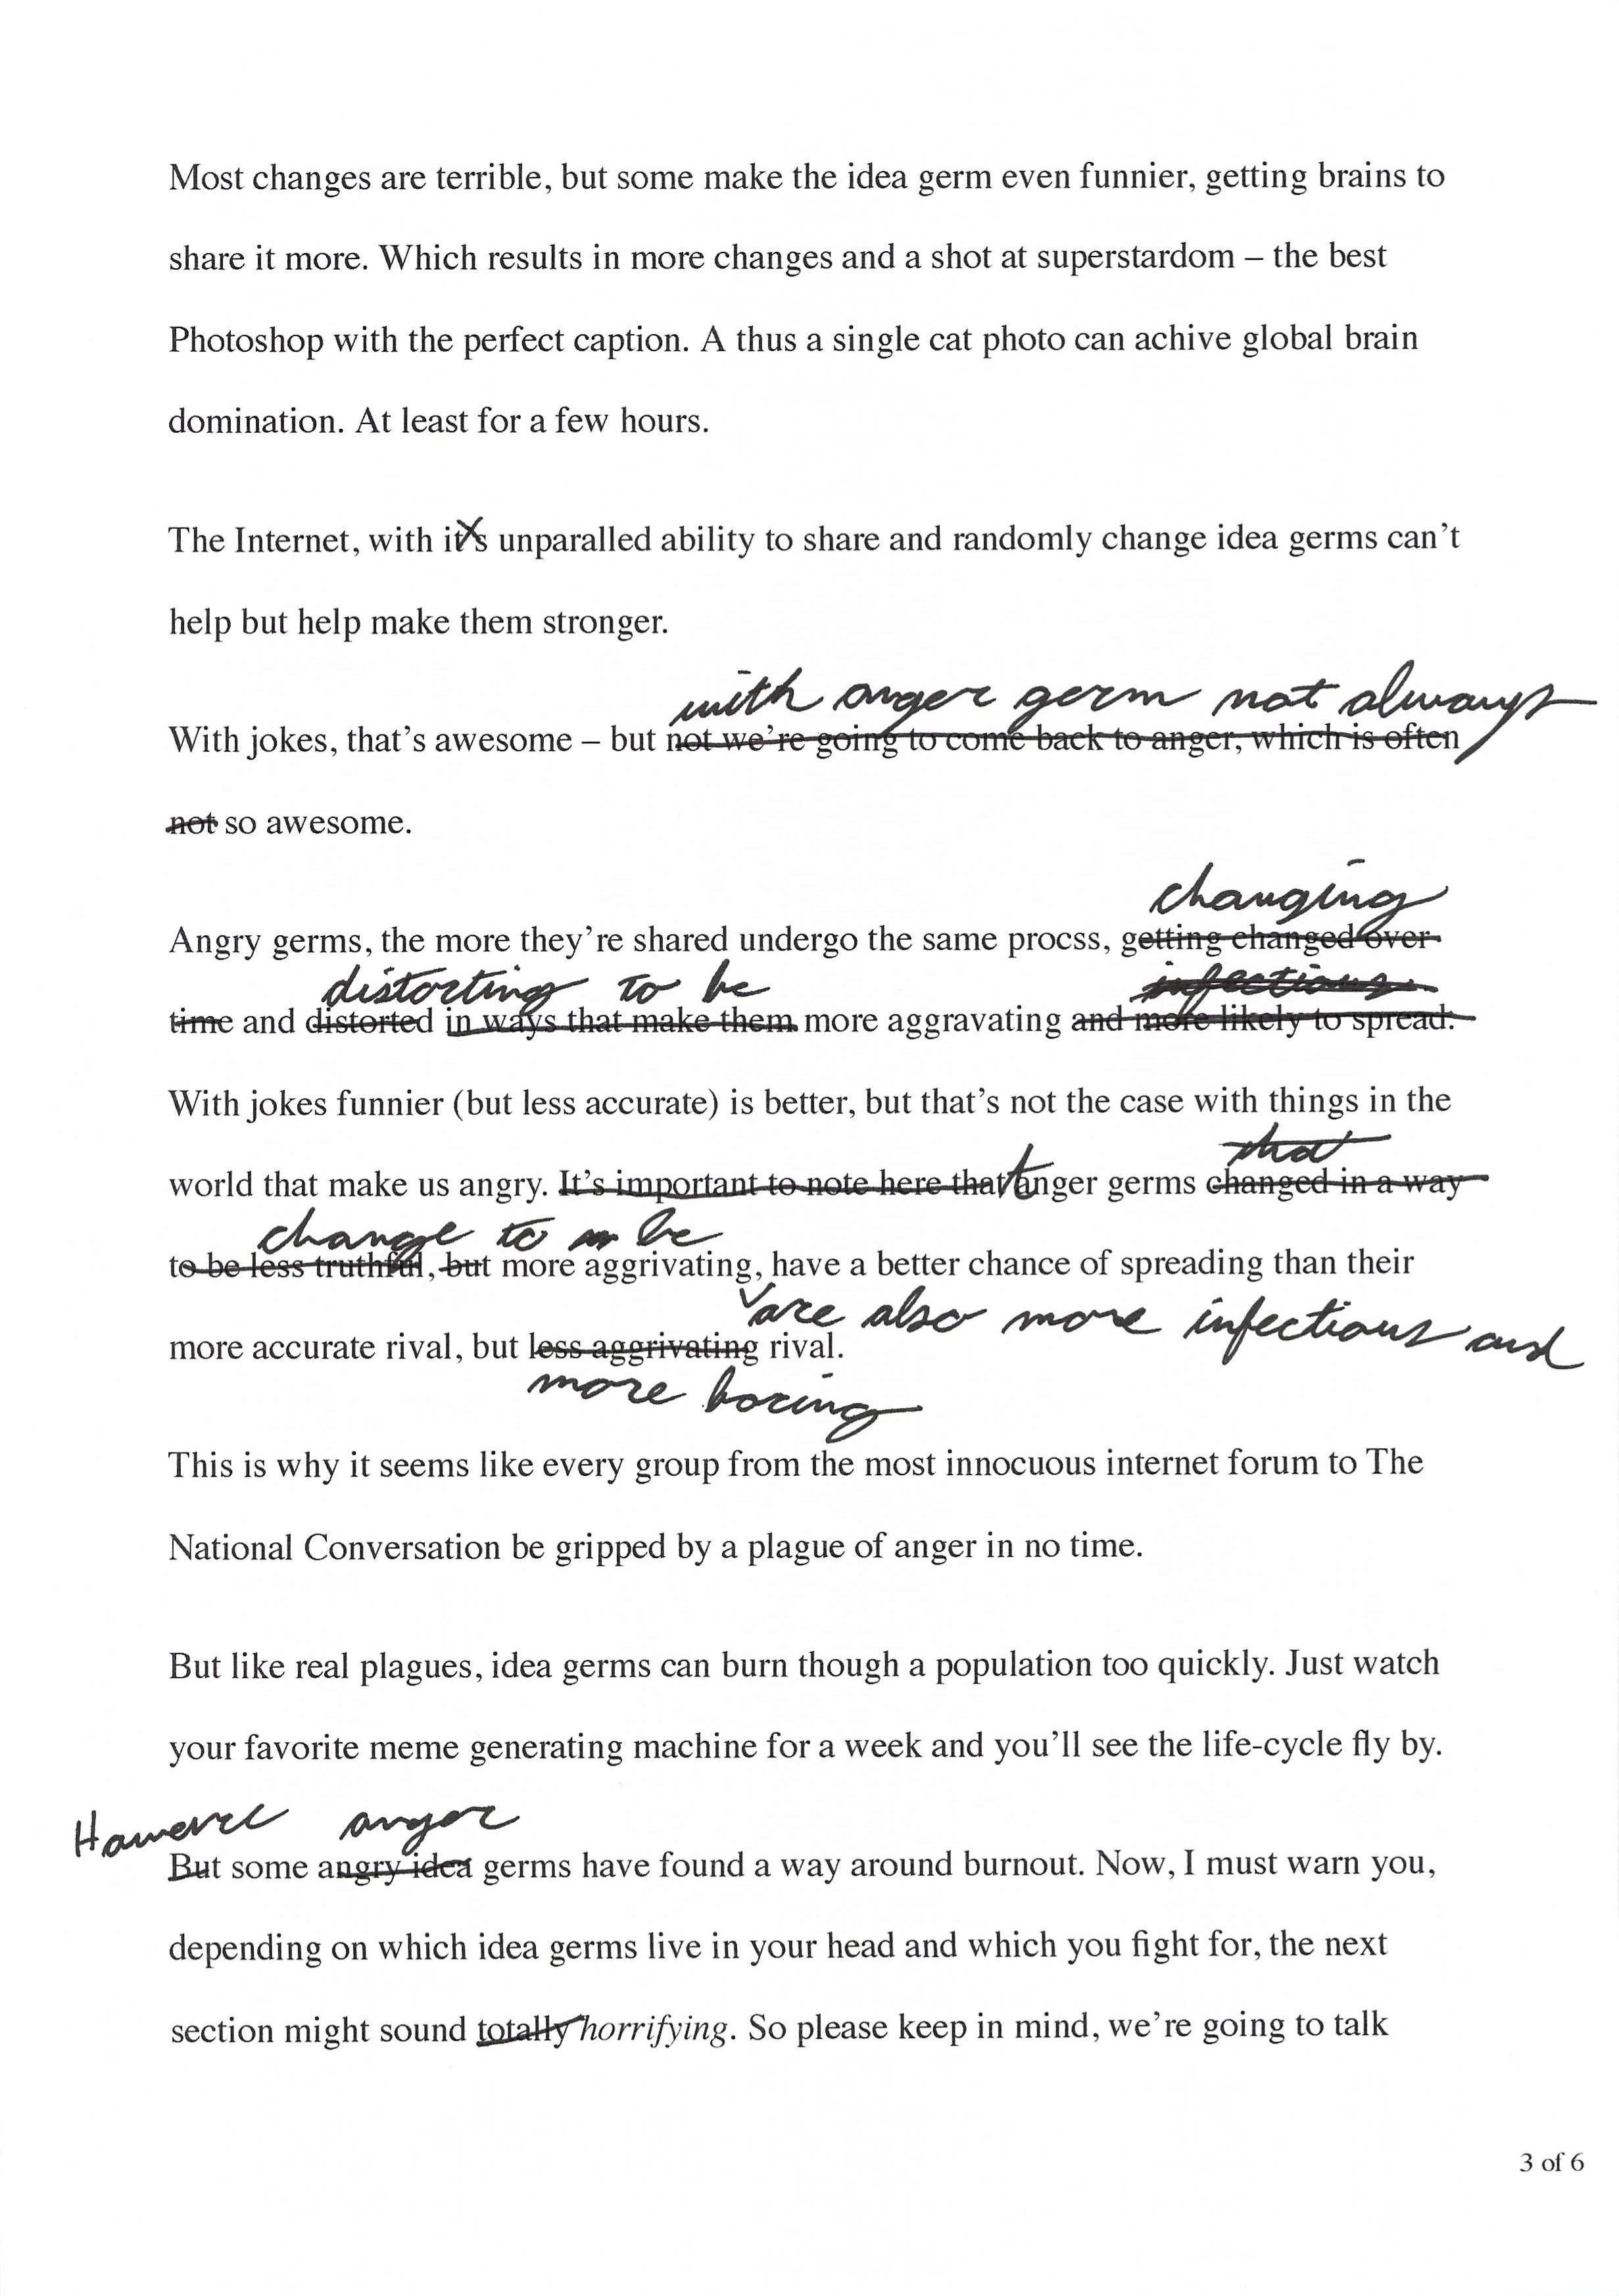 Most changes are terrible, but some make the idea germ even funnier, getting brains to
share it more. Which results in more changes and a shot at superstardom – the best
Photoshop with the perfect caption. A thus a single cat photo can achive global brain
domination. At least for a few hours.
The Internet, with it's unparalled ability to share and randomly change idea germs can't
help but help make them stronger.
with anger germ not always
With jokes, that's awesome – but not we're going to come back to anger, which is often
not so awesome.
changing
Angry germs, the more they're shared undergo the same procss, getting changed over
distorting to be infectious
time and distorted in ways that make them more aggravating and more likely to spread.
With jokes funnier (but less accurate) is better, but that's not the case with things in the
that
world that make us angry. It's important to note here that anger germs changed in a way
change to be
to be less truthful, but more aggrivating, have a better chance of spreading than their
are also more infectious and
more accurate rival, but less aggrivating rival.
more boring
This is why it seems like every group from the most innocuous internet forum to The
National Conversation be gripped by a plague of anger in no time.
But like real plagues, idea germs can burn though a population too quickly. Just watch
your favorite meme generating machine for a week and you'll see the life-cycle fly by.
However anger
But some angry idea germs have found a way around burnout. Now, I must warn you,
depending on which idea germs live in your head and which you fight for, the next
section might sound totally horrifying. So please keep in mind, we're going to talk
3 of 6